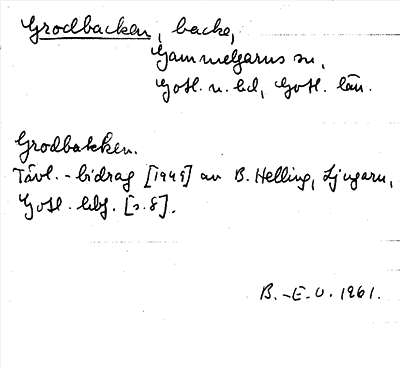 Grodbacken, backe,
Gammelgarns sn,
Gotl. n. hd, Gotl. län.
Grodbakken.
Tävl.-bidrag [1949] av B. Helling, Ljugarn,
Gotl. hbf. [s. 8].
B.-E. O. 1961.